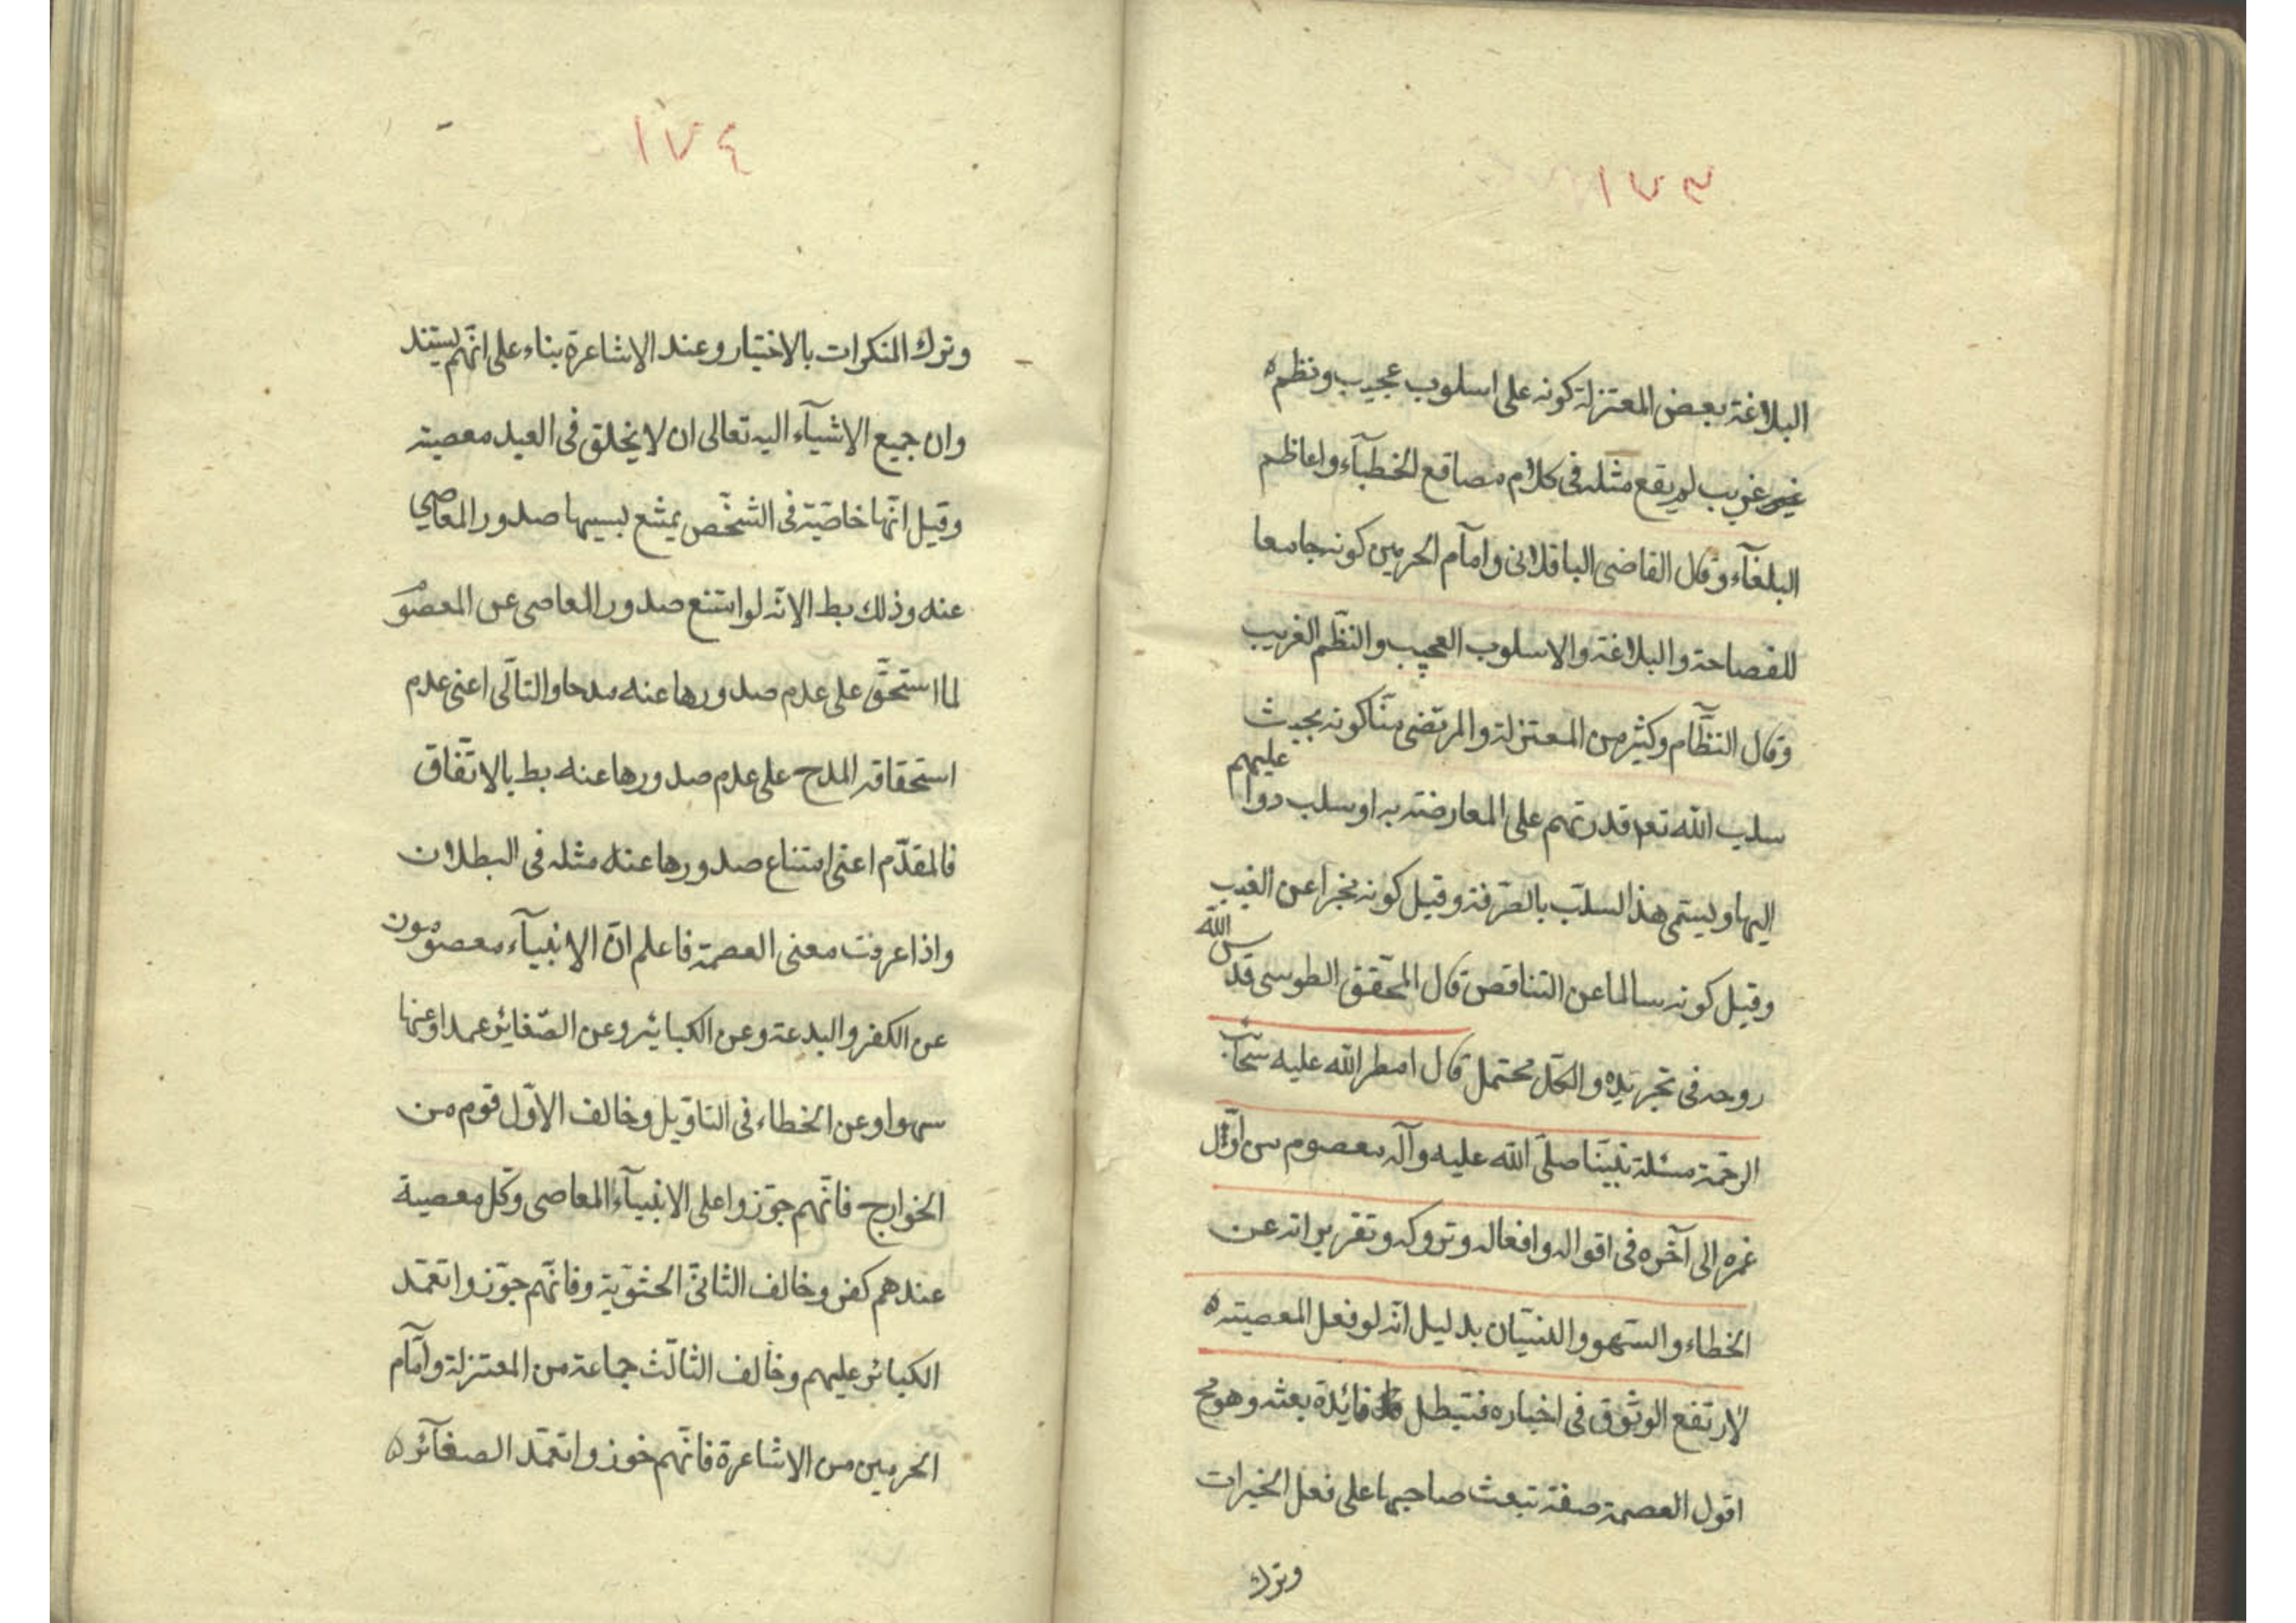 ١٧٣
البلاغة بعض المعتزلة كونه على اسلوب عجيب ونظم
غريب لم يقع مثله فى كلام مصاقع الخطبآء واعاظم
البلغآء وقال القاضى الباقلانى وامآم الحرمين كونه جامعا
للفصاحة والبلاغة والاسلوب العجيب والنظم الغريب
وقال النظّام وكثير من المعتزلة والمرتضى منّا كونه بحيث
سلب الله تعه قدرتهم على المعارضة به او سلب دواعيهم
اليها ويسمّى هذا السلب بالصّرفة وقيل كونه مخبرا عن الغيب
وقيل كونه سالما عن التناقص قال المحقّق الطوسى قدّس الله
روحه فى تجريده والكلّ محتمل قال امطر الله عليه سحائب
الرحمة مسئلة نبيّنا صلّى الله عليه وآله معصوم من اوّل
عمره الى آخره فى اقواله وافعاله وتروكه وتقريراته عن
الخطاء والسّهو والنسيان بدليل انّه لو فعل المعصية
لارتفع الوثوق فى اخباره فتبطل فائدة بعثه وهو مح
اقول العصمة صفة تبعث صاحبها على فعل الخيرات
وترك
١٧٤
وترك المنكرات بالاختيار وعند الاشاعرة بناء على انّهم يستند
وان جميع الاشيآء اليه تعالى ان لا يخلق فى العبد معصية
وقيل انّها خاصّية فى الشخّص يمتنع بسببها صدور المعاصي
عنه وذلك بط لانّه لو امتنع صدور المعاصى عن المعصوم
لما استحقّ على عدم صدورها عنه مدحا والتالى اعنى عدم
استحقاقه المدح على عدم صدورها عنه بط بالاتّفاق
فالمقدّم اعنى امتناع صدورها عنه مثله فى البطلان
واذا عرفت معنى العصمة فاعلم انّ الانبيآء معصومون
عن الكفر والبدعة وعن الكبائر وعن الصّغائر عمدا وعنها
سهوا وعن الخطاء فى التاويل وخالف الاوّل قوم من
الخوارج فانّهم جوّزوا على الانبيآء المعاصى وكل معصية
عندهم كفر وخالف الثانى الحشويّة وفانّهم جوّزوا تعمّد
الكبائر عليهم وخالف الثالث جماعة من المعتزلة وامآم
الحرمين من الاشاعرة فانّهم جوزوا تعمّد الصغآئر